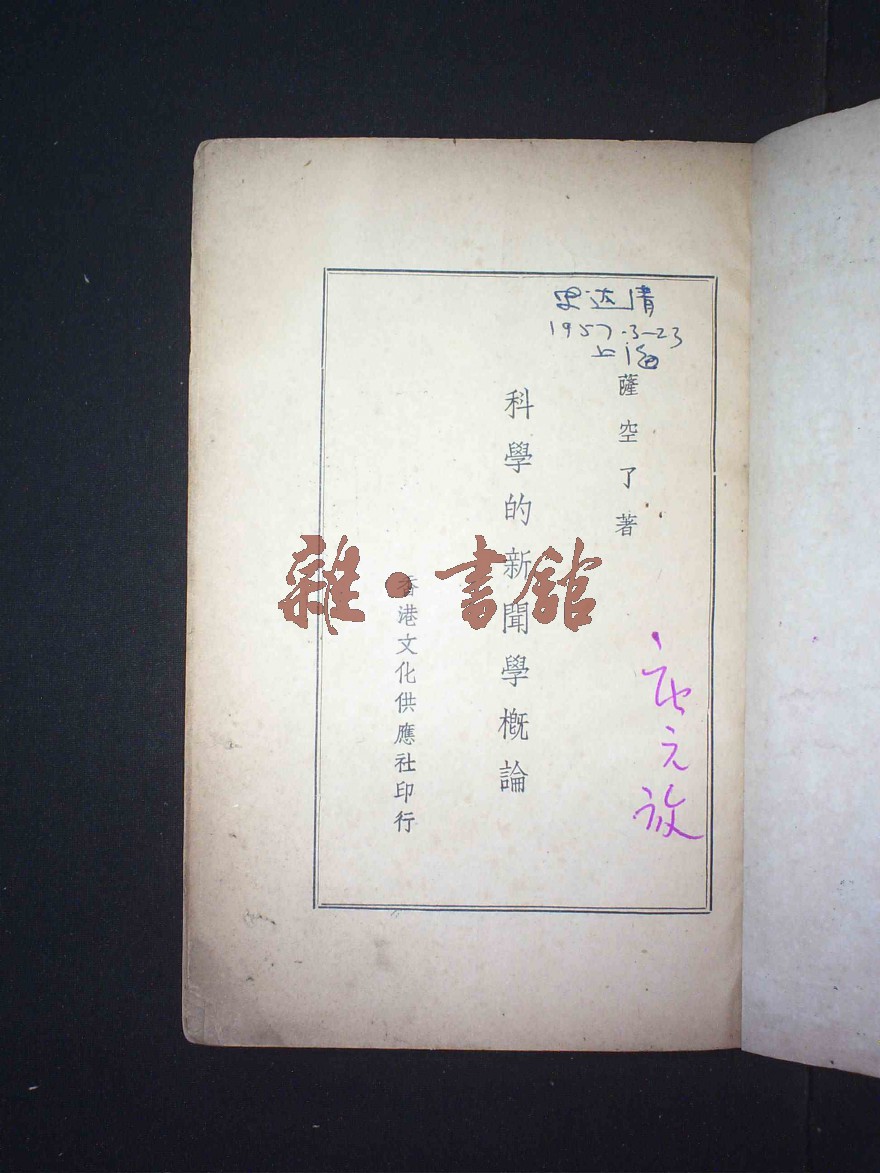 史达倩
1957.3-23
上海
薩空了著
科學的新聞學概論
香港文化供應社印行
元放
雜·書館